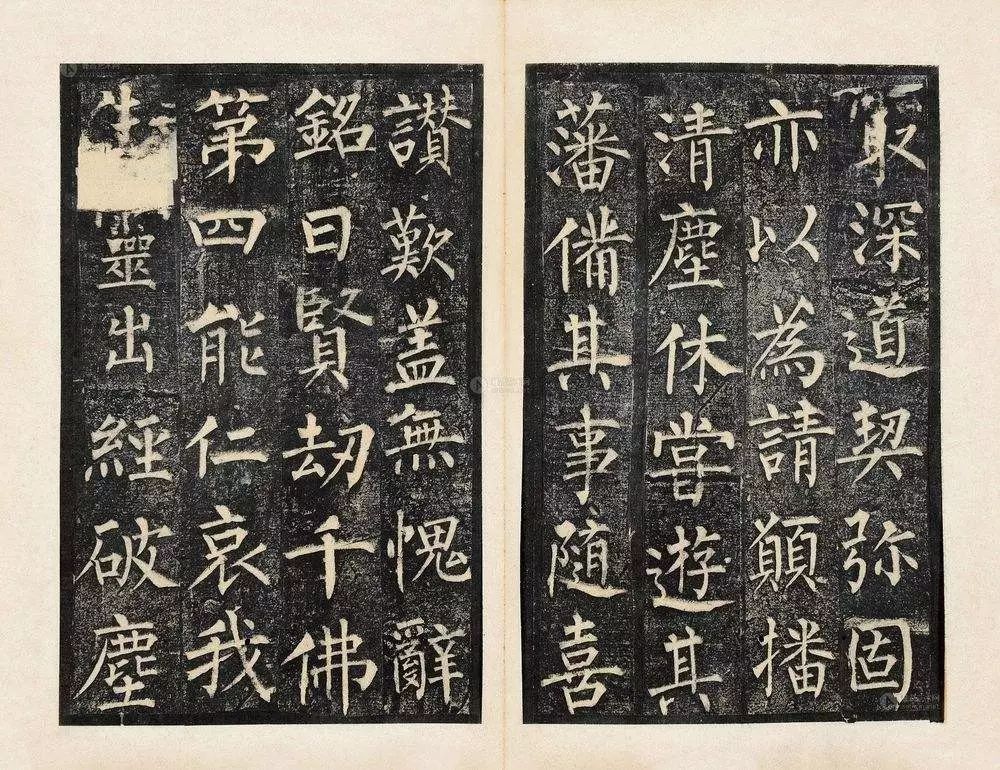 冣深道契弥固
亦以為請願播
清塵休甞遊其
藩備其事隨喜
讃歎盖無愧辭
銘曰賢劫千佛
第四能仁哀我
生靈出經破塵